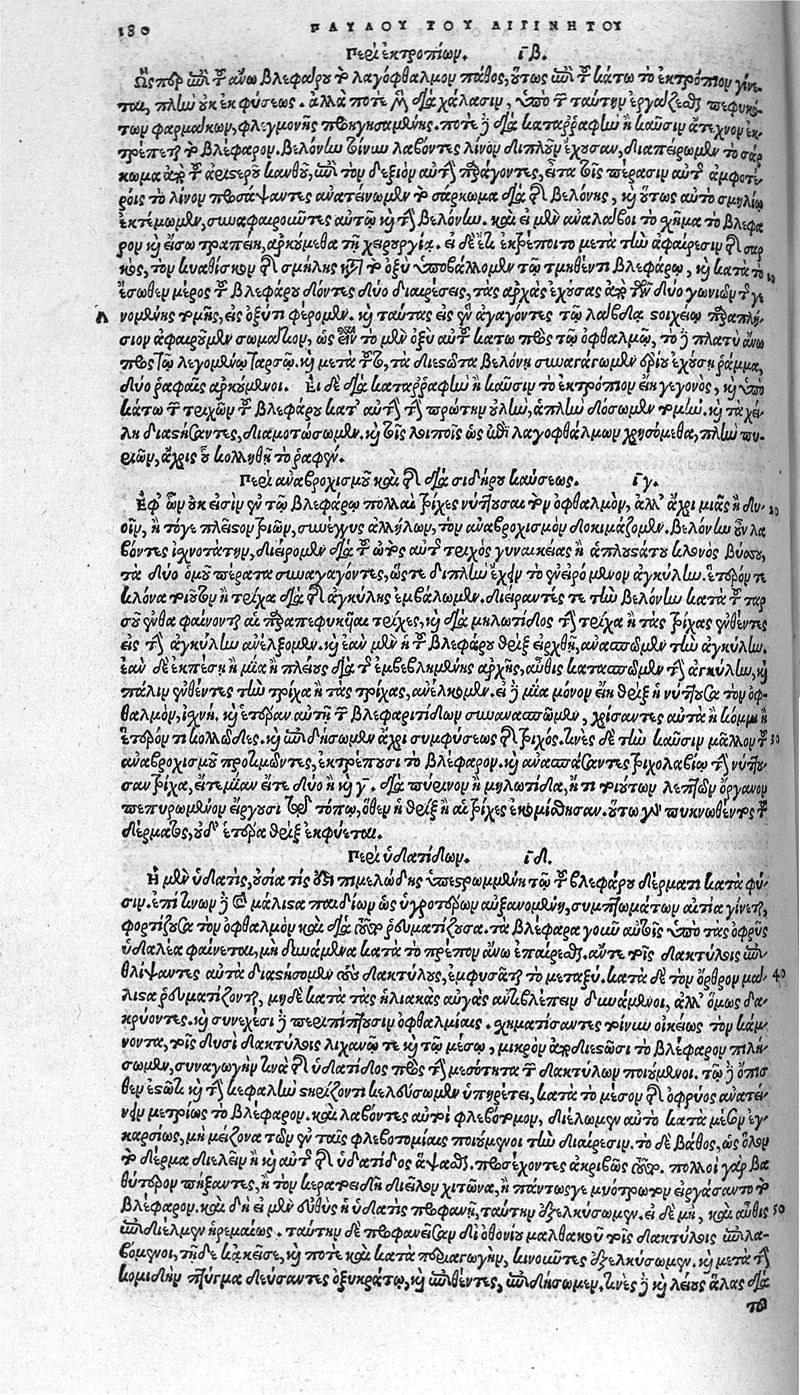 180 ΠΑΥΛΟΥ ΤΟΥ ΑΙΓΙΝΗΤΟΥ
Περὶ ἐκτροπίων. ιβ.
Ὥσπερ ἐπὶ τοῦ ἄνω βλεφάρου τὸ λαγόφθαλμον πάθος, οὕτως ἐπὶ τοῦ κάτω τὸ ἐκτρόπιον γίνε-
ται, πλὴν οὐκ ἐκ φύσεως. ἀλλὰ ποτὲ μὲν διὰ χάλασιν, ὑπὸ τῶν ταύτην ἐργάζεσθαι πεφυκό-
των φαρμάκων, φλεγμονῆς προηγησαμένης. ποτὲ δὲ διὰ καταρραφὴν ἢ καῦσιν ἄτεχνον ἐκ-
τρέπεται τὸ βλέφαρον. βελόνην τοίνυν λαβόντες λίνον διπλοῦν ἔχουσαν, διαπείρωμεν τὸ σάρ
κωμα ἀπὸ τοῦ ἀριστεροῦ κανθοῦ, ἐπὶ τὸν δεξιὸν αὐτὴν προάγοντες, εἶτα τοῖς πέρασιν αὐτῆς ἀμφοτέ-
ροις τὸ λίνον προσάψαντες ἀνατείνωμεν τὸ σάρκωμα διὰ τῆς βελόνης, καὶ οὕτως αὐτὸ σμηλίῳ
ἐκτέμωμεν, συναφαιροῦντες αὐτῷ καὶ τὴν βελόνην. καὶ εἰ μὲν ἀναλάβοι τὸ σχῆμα τὸ βλέφα
ρον καὶ εἴσω τραπείη, ἀρκούμεθα τῇ χειρουργίᾳ. εἰ δὲ ἔτι ἐκτρέποιτο μετὰ τὴν ἀφαίρεσιν τῆς σαρ
κὸς, τὸν κυαθίσκον τῆς σμήλης κατὰ τὸ ὀξὺ ὑποβάλλομεν τῷ τμηθέντι βλεφάρῳ, καὶ κατὰ τὸ 10
ἔσωθεν μέρος τοῦ βλεφάρου δόντες δύο διαιρέσεις, τὰς ἀρχὰς ἐχούσας ἀπὸ τῶν δύο γωνιῶν τῆς γε
Λ νομένης τομῆς, εἰς ὀξύ τι φέρομεν. καὶ ταύτας εἰς ἓν ἀγαγόντες τῷ λάβδα στοιχείῳ παραπλή-
σιον ἀφαιροῦμεν σωμάτιον, ὡς εἶναι τὸ μὲν ὀξὺ αὐτοῦ κάτω πρὸς τῷ ὀφθαλμῷ, τὸ δὲ πλατὺ ἄνω
πρὸς τῷ λεγομένῳ ταρσῷ. καὶ μετὰ τοῦτο, τὰ διεστῶτα βελόνῃ συναγάγωμεν ἔριον ἐχούσῃ ῥάμμα,
δύο ῥαφαῖς ἀρκούμενοι. Εἰ δὲ διὰ καταρραφὴν ἢ καῦσιν τὸ ἐκτρόπιον εἴη γεγονὸς, καὶ ὑπο
κάτω τῶν τριχῶν τοῦ βλεφάρου κατ' αὐτὴν τὴν πρώτην οὐλὴν, ἁπλῆν δώσωμεν τομήν. καὶ τὰ χεί-
λη διαστήσαντες, διαμοτώσωμεν. καὶ τοῖς λοιποῖς ὡς ἐπὶ λαγοφθάλμων χρησόμεθα, πλὴν πυ-
ριῶν, ἄχρις οὗ κολληθῇ τὸ ῥαφέν.
Περὶ ἀναβροχισμοῦ καὶ τῆς διὰ σιδήρου καύσεως. ιγ.
Ἐφ' ὧν οὐκ εἰσὶν ἐν τῷ βλεφάρῳ πολλαὶ τρίχες νύττουσαι τὸν ὀφθαλμὸν, ἀλλ' ἄχρι μιᾶς ἢ δυ- 20
οῖν, ἢ τόγε πλεῖστον τριῶν, συνεγγὺς ἀλλήλων, τὸν ἀναβροχισμὸν δοκιμάζομεν. βελόνην οὖν λα
βόντες ἰσχνοτάτην, διείρομεν διὰ τοῦ ὠτὸς αὐτῆς τρίχας γυναικείας ἢ ἁπλουστάτου κλῶνος βύσσου,
τὰ δύο ὁμοῦ πέρατα συναγαγόντες, ὥστε διπλῆν ἔχειν τὸ ἐνειρόμενον ἀγκύλην. ἕτερόν τε
κλῶνα τοιοῦτον ἢ τρίχα διὰ τῆς ἀγκύλης ἐμβάλωμεν. διείραντές τε τὴν βελόνην κατὰ τοῦ ταρ
σοῦ ἔνθα φαίνονται αἱ παραπεφυκυῖαι τρίχες, καὶ διὰ μηλωτίδος τὴν τρίχα ἢ τὰς τρίχας ἐνθέντες
εἰς τὴν ἀγκύλην ἀνέλξομεν. καὶ ἐὰν μὲν ἡ τοῦ βλεφάρου θρὶξ εἰρχθῇ, ἀνασπῶμεν τὴν ἀγκύλην.
ἐὰν δὲ ἐκπέσῃ ἢ μία ἢ πλείους διὰ τῆς ἐμβεβλημένης ἀρχῆς, αὖθις κατασπῶμεν τὴν ἀγκύλην, καὶ
πάλιν ἐνθέντες τὴν τρίχα ἢ τὰς τρίχας, ἀνέλκομεν. εἰ δὲ μία μόνον εἴη θρὶξ ἡ νύττουσα τὸν ὀφ-
θαλμὸν, ἰσχνὴ. καὶ ἑτέραν αὐτῇ τῶν βλεφαριτίδων συνανασπῶμεν, χρίσαντες αὐτὰ ἢ κόμμι ἢ
ἕτερόν τι κολλῶδες. καὶ ἐπιδήσωμεν ἄχρι συμφύσεως τῆς τριχός. τινὲς δὲ τὴν καῦσιν μᾶλλον τοῦ 30
ἀναβροχισμοῦ προτιμῶντες, ἐκτρέπουσι τὸ βλέφαρον. καὶ ἀνασπάσαντες τριχολαβίῳ τὴν νύττου-
σαν τρίχα, εἴτε μίαν εἴτε δύο ἢ καὶ γ. διὰ πύρινον ἢ μηλωτίδα, ἤ τι τοιούτων λεπτῶν ὄργανον
πεπυρωμένον εἴργουσι τῷ τόπῳ, ὅθεν ἡ θρὶξ ἢ αἱ τρίχες ἐκομίσθησαν. οὕτω γὰρ πυκνωθέντος τοῦ
δέρματος, οὐδ' ἑτέρα θρὶξ ἐκφύεται.
Περὶ ὑδατίδων. ιδ.
Ἡ μὲν ὑδατὶς, οὐσία τίς ἐστι πιμελώδης ὑπεστρωμμένη τῷ τοῦ βλεφάρου δέρματι κατὰ φύ-
σιν. ἐπί τινων δὲ καὶ μάλιστα παιδίων ὡς ὑγροτέρων αὐξανομένη, συμπτωμάτων αἰτία γίνεται,
φορτίζουσα τὸν ὀφθαλμὸν καὶ διὰ τοῦτο ῥευματίζουσα. τὰ βλέφαρα γοῦν αὐτοῖς ὑπὸ τὰς ὀφρῦς
ὑδαλέα φαίνεται, μὴ δυνάμενα κατὰ τὸ πρέπον ἄνω ἐπαίρεσθαι. αὖτε τοῖς δακτύλοις ἐπι-
θλίψαντες αὐτὰ διαστήσομεν τοὺς δακτύλους, ἐμφυσᾶται τὸ μεταξύ. κατὰ δὲ τὸν ὄρθρον μά- 40
λιστα ῥευματίζονται, μηδὲ κατὰ τὰς ἡλιακὰς αὐγὰς ἀντιβλέπειν δυνάμενοι, ἀλλ' ὅμως δα-
κρύοντες. καὶ συνεχέσι δὲ περιπίπτουσιν ὀφθαλμίαις. σχηματίσαντες τοίνυν οἰκείως τὸν κάμ-
νοντα, τοῖς δυσὶ δακτύλοις λιχανῷ τε καὶ τῷ μέσῳ, μικρὸν ἀποδιεστῶσι τὸ βλέφαρον πιλή-
σωμεν, συναγωγήν τινα τῆς ὑδατίδος πρὸς τὴν μεσότητα τῶν δακτύλων ποιούμενοι. τῷ δὲ ὄπισ
θεν ἑστῶτι καὶ τὴν κεφαλὴν στηρίζοντι κελεύσωμεν ὑπηρέτῃ, κατὰ τὸ μέσον τῆς ὀφρύος ἀνατεί-
νειν μετρίως τὸ βλέφαρον. καὶ λαβόντες αὐτοὶ φλεβοτόμον, διέλωμεν αὐτὸ κατὰ μέσον ἐγ-
καρσίως, μὴ μείζονα τῶν ἐν τοῖς φλεβοτομίαις ποιούμενοι τὴν διαίρεσιν. τὸ δὲ βάθος, ὡς ὅλον
τὸ δέρμα διελεῖν ἢ καὶ αὐτῆς τῆς ὑδατίδος ἅψασθαι. προσέχοντες ἀκριβῶς τούτῳ. πολλοὶ γὰρ βα
θύτερον πήξαντες, ἢ τὸν κερατοειδῆ διεῖλον χιτῶνα, ἢ πάντωςγε μυότρωτον εἰργάσαντο τὸ
βλέφαρον. καὶ δὴ εἰ μὲν εὐθὺς ἡ ὑδατὶς προφανῇ, ταύτην ἐξελκύσωμεν. εἰ δὲ μὴ, καὶ αὖθις 50
ἐπιδιέλωμεν ἠρεμαίως. ταύτην δὲ προφανεῖσαν δι' ὀθονίου μαλθακοῦ τοῖς δακτύλοις ἐπιλα-
βόμενοι, τῇδε κἀκεῖσε, καί ποτε καὶ κατὰ περιαγωγὴν, κινοῦντες ἐξελκύσωμεν. καὶ μετὰ τὴν
κομιδὴν πτύγμα δεύσαντες ὀξυκράτῳ, καὶ ἐπιθέντες, ἐπιδήσωμεν. τινὲς δὲ καὶ λείους ἅλας διὰ
τοῦ